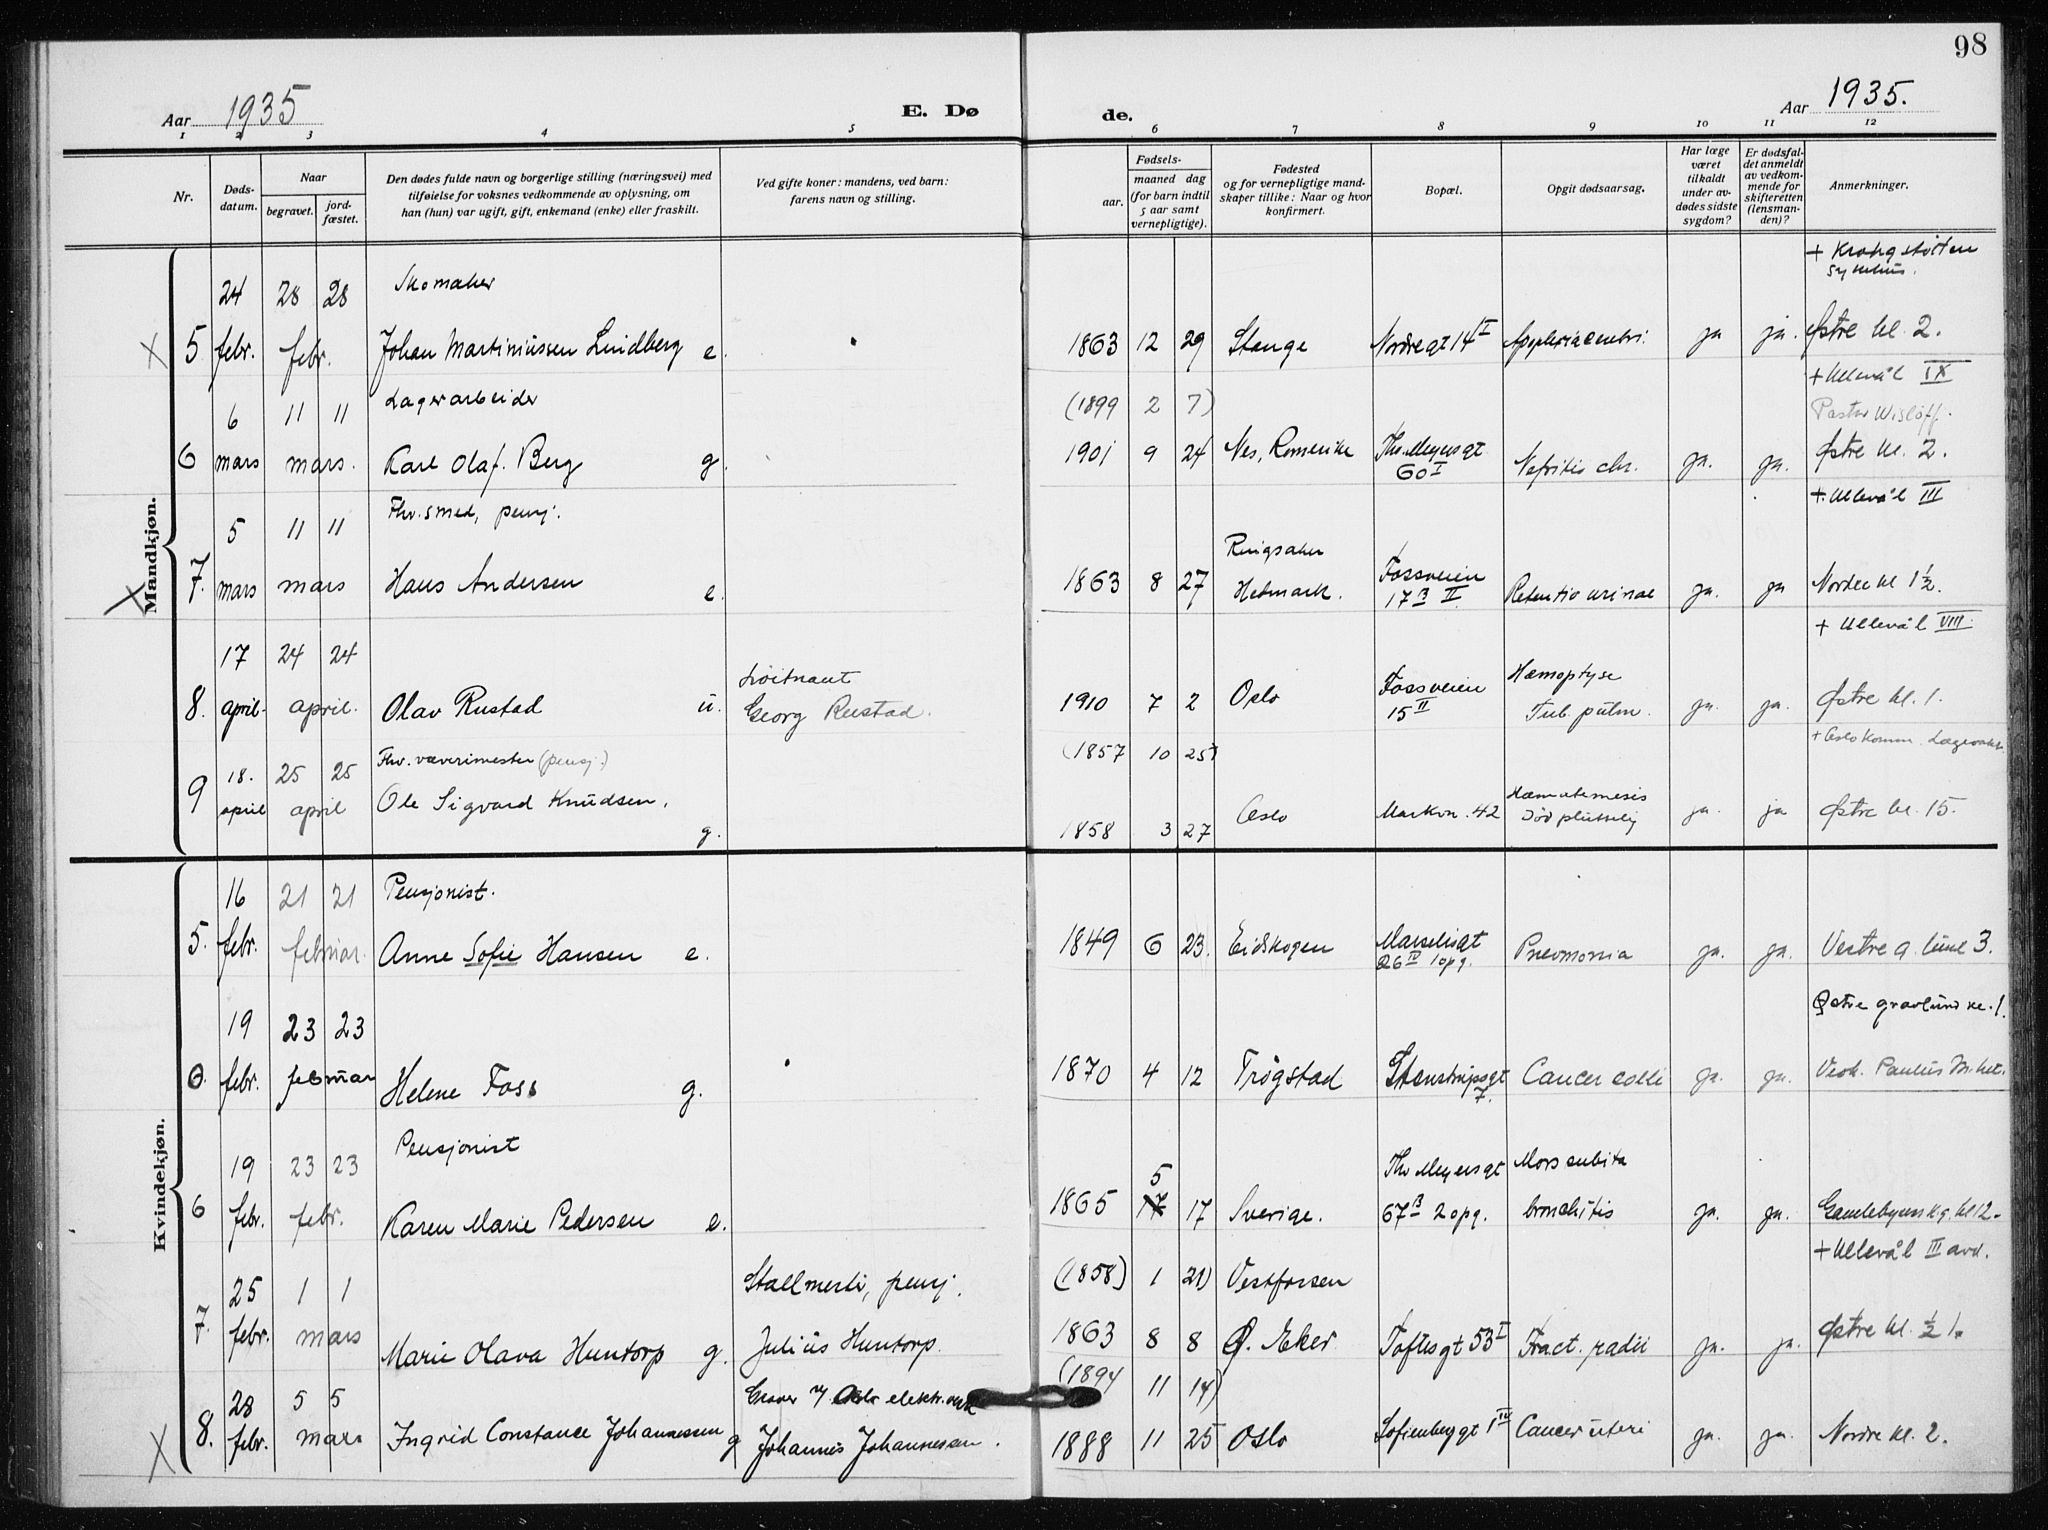 98
Aar 1935
E. Dø
de.
Aar 1935.
1 2 3 4 5 6 7 8 9 10 11 12
Nr.
Døds-
datum.
Naar
begravet.
jord-
fæstet.
Den dødes fulde navn og borgerlige stilling (næringsvei) med
tilføielse for voksnes vedkommende av oplysning, om
han (hun) var ugift, gift, enkemand (enke) eller fraskilt.
Ved gifte koner: mandens, ved barn:
farens navn og stilling.
Fødsels-
aar.
maaned dag
(for barn indtil
5 aar samt
vernepligtige).
Fødested
og for vernepligtige mand-
skaper tillike: Naar og hvor
konfirmert.
Bopæl.
Opgit dødsaarsag.
Har læge
været
tilkaldt
under av-
dødes sidste
sygdom?
Er dødsfal-
det anmeldt
av vedkom-
mende for
skifteretten
(lensman-
den)?
Anmerkninger.
Mandkjøn.
+ Krohgstøtten
sykehus.
24 28 28 Skomaker
X 5 febr. febr. Johan Martiniussen Lindberg e. 1863 12 29 Stange Nordregt 14 I Apoplexia cerebri. ja ja. Østre kl. 2.
+ Ullevål IX
6 11 11 Lagerarbeider (1899 2 7) Pastor Wisløff.
6 mars mars. Karl Olaf. Berg g. 1901 9 24 Nes, Romerike Th. Meyersgt 60 I Nefritis chr. ja. ja. Østre kl. 2.
+ Ullevål III
5 11 11 Fhv. smed, pensj. Ringsaker
7. mars mars Hans Andersen e. 1863 8 27 Hedmark. Fossveien 17 B II Retentio urinae ja. ja Nordre kl 1 ½.
X
+ Ullevål VIII
17 24 24 Løitnant Hæmoptyse
8. april. april. Olav Rustad u. Georg Rustad. 1910 7 2 Oslo Fossveien 15 II Tub. pulm. ja. ja. Østre kl. 1.
+ Oslo komm. Lægevakt.
18. 25 25 Fhv. væverimester (pensj.) (1857 10 25) Hæmatemesis
9 april april Ole Sigvard Knudsen. g. 1858 3 27 Oslo Markvn. 42 Død plutselig ja. ja Østre kl. 15.
Kvindekjøn.
16 21 21 Pensjonist.
5. febr. februar. Anne Sofie Hansen e. 1849 6 23. Eidskogen Marselisgt 26 IV 1 opg. Pneumonia ja. ja. Vestre g. lund 3.
19 23 23 Østre gravlund kl. 1.
6. febr. februar Helene Foss g. 1870 4 12 Trøgstad Stenstrupsgt 7. Cancer colli ja. ja. Vesk. Paulus M.het.
19 23 23 Pensjonist 5 Th. Meyersgt Mors subita
6 febr. febr. Karen Marie Pedersen e. 1865 17 Sverige. 67 B 2 opg. bronchitis ja. ja. Gamlebyens k.g. kl 12.
+ Ullevål III avd.
25 1 1 Stallmester, pensj. (1858) 1 21) Vestfossen
7. febr. mars Marie Olava Huntorp g. Julius Huntorp. 1863 8 8 Ø. Eker Toftesgt 53 I Fract. radii ja. ja. Østre kl. ½ 1.
28 5 5 Graver v. Oslo elektr. verk (1894 11 14)
X 8. febr. mars Ingrid Constance Johannessen g Johannes Johannessen. 1888 11 25 Oslo Sofienberggt 1 IV Cancer uteri ja. ja. Nordre kl. 2.